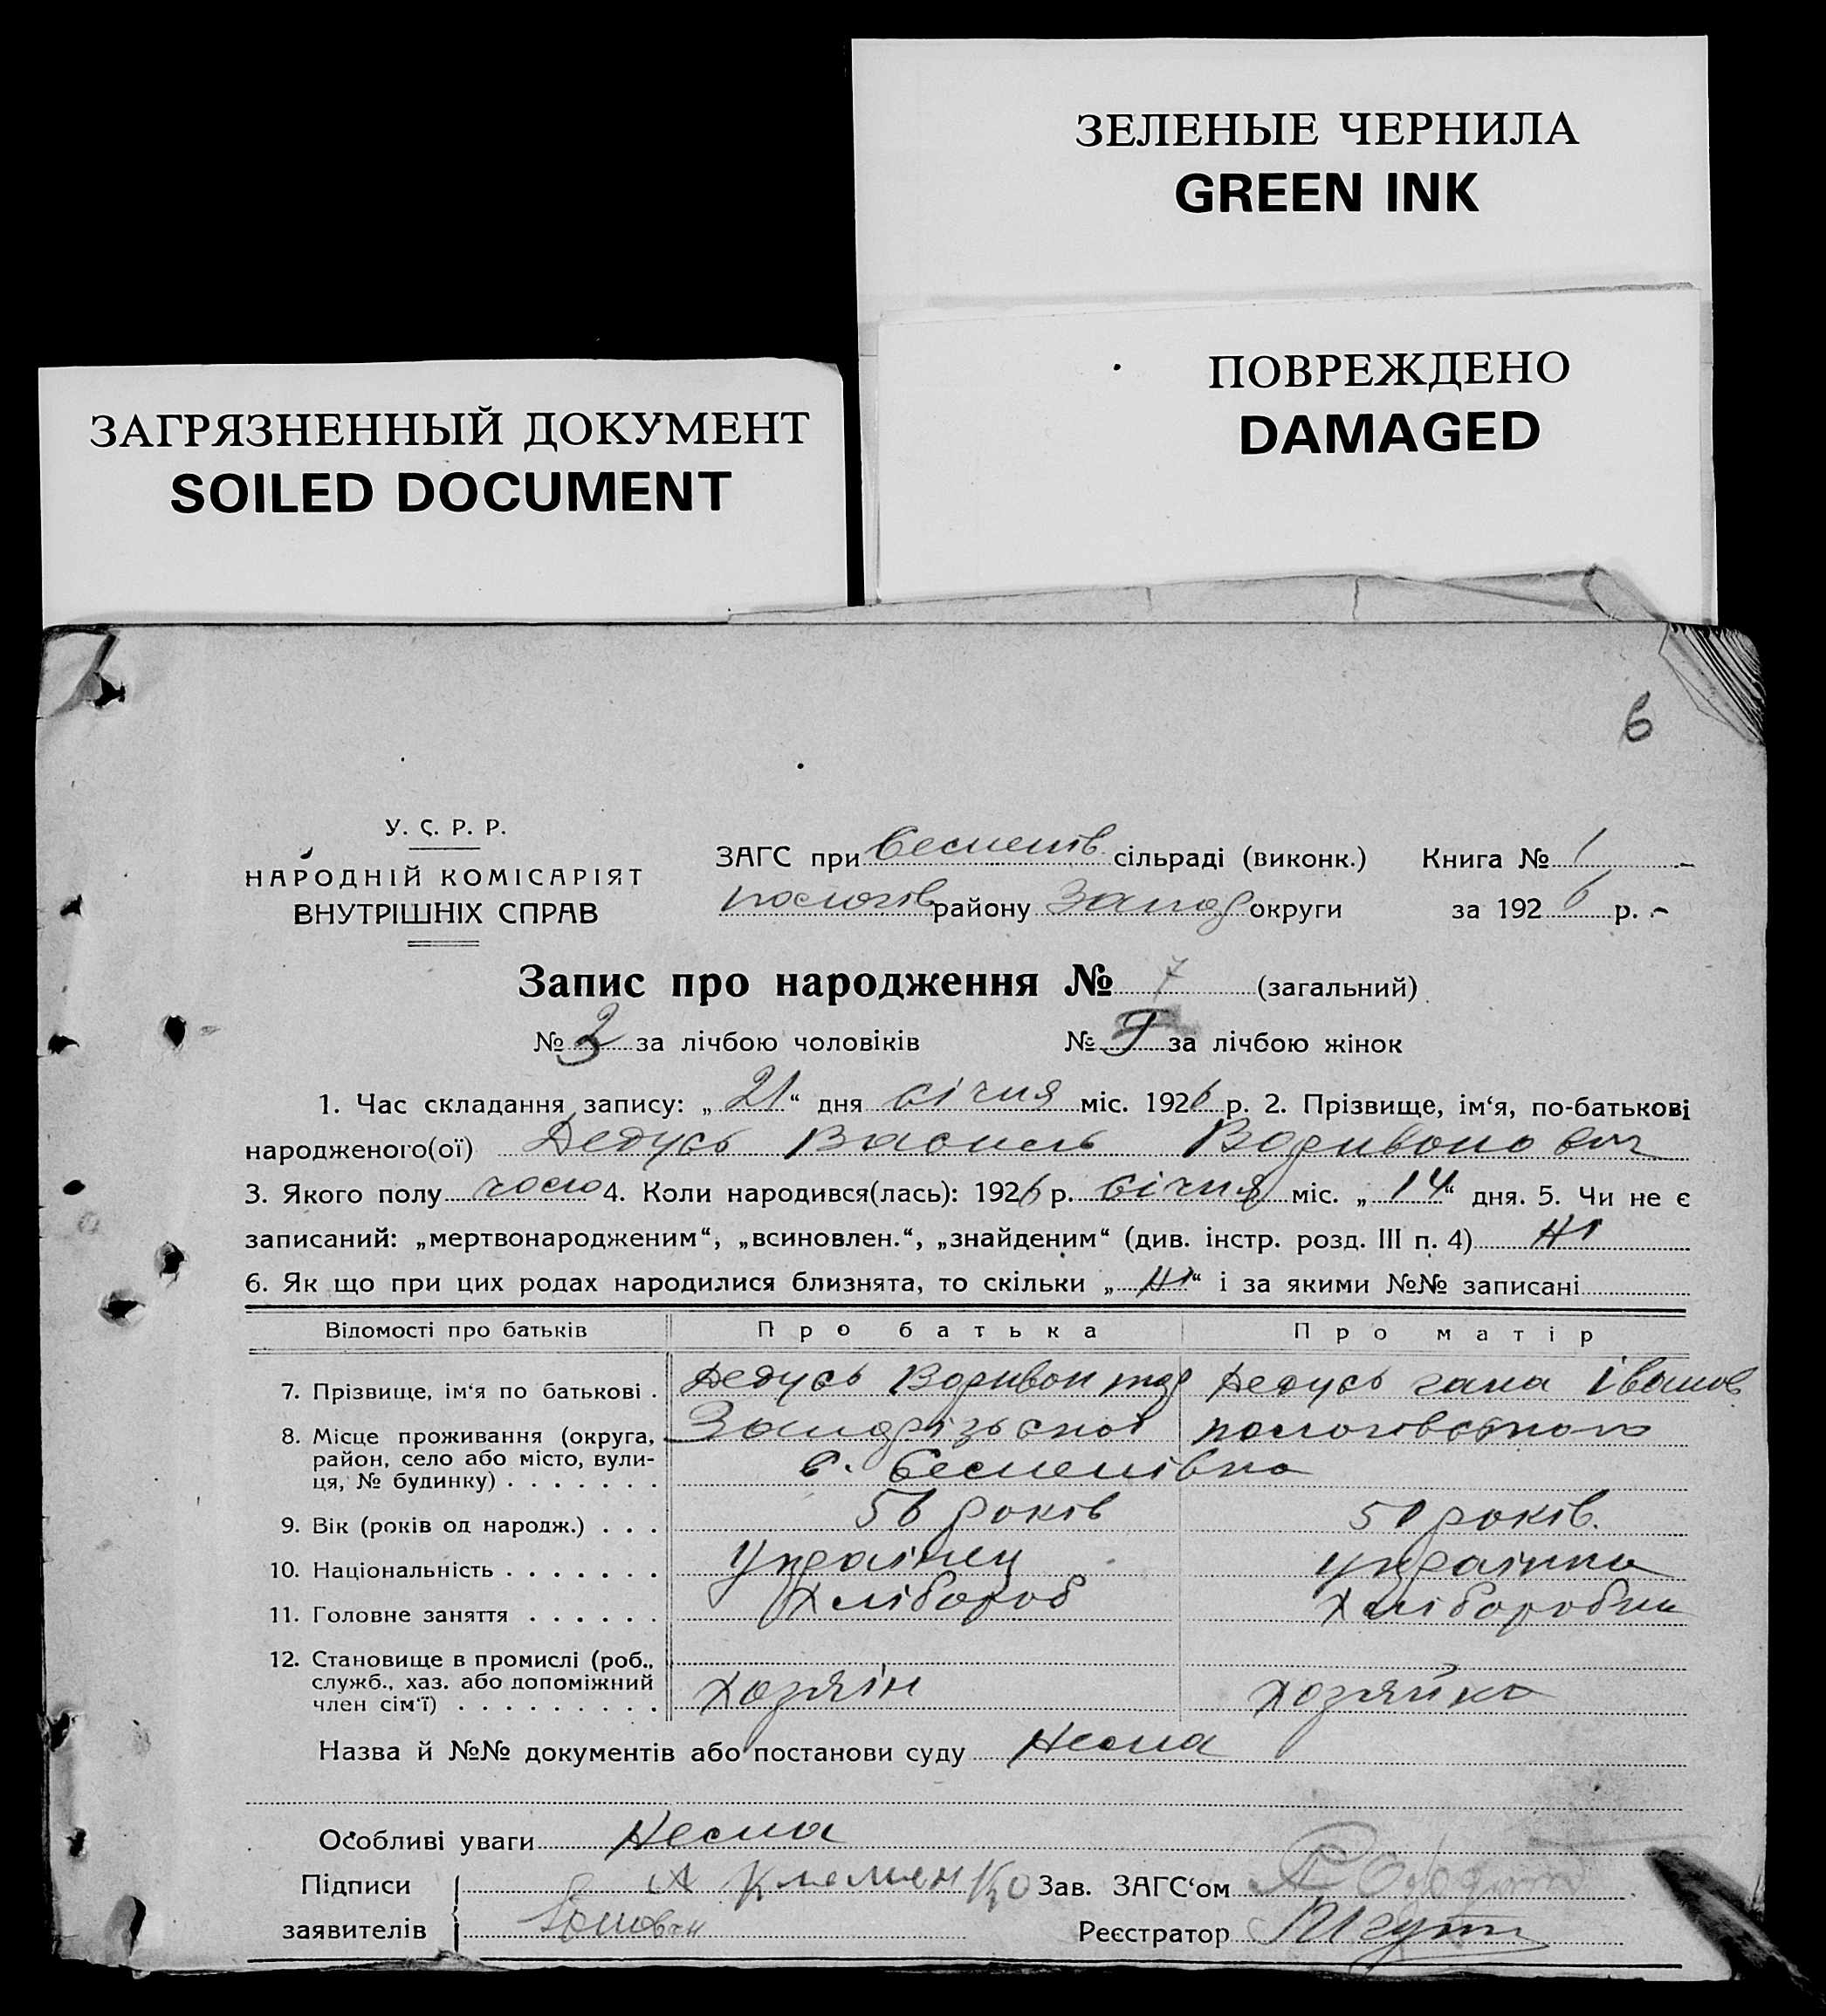 ЗЕЛЕНЫЕ ЧЕРНИЛА
GREEN INK
ПОВРЕЖДЕНО
DAMAGED
ЗАГРЯЗНЕННЫЙ ДОКУМЕНТ
SOILED DOCUMENT
6
У. С. Р. Р.
НАРОДНІЙ КОМІСАРІЯТ
ВНУТРІШНІХ СПРАВ
ЗАГС при сільраді (виконк.) Книга № 1
пологів району Запор округи за 1926 р.
Запис про народження № 7 (загальний)
№ 3 за лічбою чоловіків № за лічбою жінок
1. Час складання запису: „21“ дня січня міс. 1926 р. 2. Прізвище, ім‘я, по-батькові
народженого(ої) Дедусь Василь Воривонович
3. Якого полу чоло 4. Коли народився(лась): 1926 р. січня міс. „14“ дня. 5. Чи не є
записаний: „мертвонародженим“, „всиновлен.“, „знайденим“ (див. інстр. розд. III п. 4) Ні
6. Як що при цих родах народилися близнята, то скільки „Ні“ і за якими №№ записані
Відомості про батьків Про батька Про матір
7. Прізвище, ім‘я по батькові . Дедусь Воривон Дедусь гана Іванов
8. Місце проживання (округа, пологовського
район, село або місто, вули-
ця, № будинку) . . . . . . . с.
9. Вік (років од народж.) . . . 56 років 51 років.
10. Національність . . . . . . . Українец українка
11. Головне заняття . . . . . . Хлібороб Хліборобка
12. Становище в промислі (роб.,
служб., хаз. або допоміжний Хозяін хозяйка
член сім‘ї) . . . . . . . . .
Назва й №№ документів або постанови суду Нема
Особливі уваги Нема
Підписи А Клеменко Зав. ЗАГС‘ом
заявителів Реєстратор